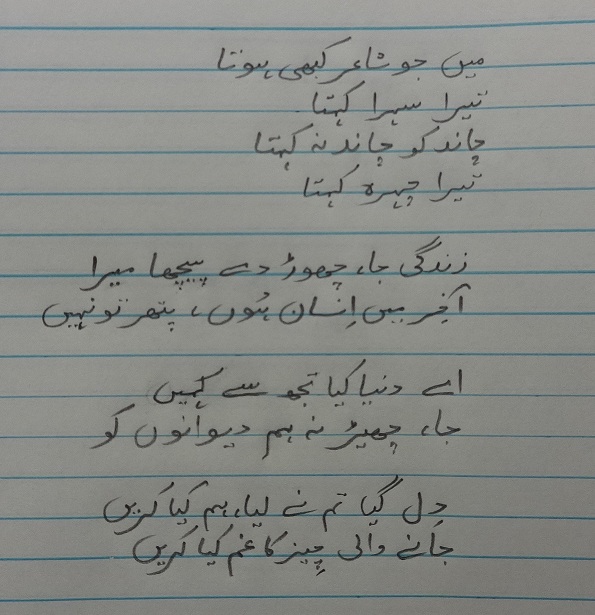 میں جو شاعر کبھی ہوتا
تیرا سہرا کہتا
چاند کو چاند نہ کہتا
تیرا چہرہ کہتا
زندگی جا، چھوڑ دے پیچھا میرا
آخِر میں اِنسان ہُوں، پتھر تو نہیں
اے دنیا کیا تجھ سے کہیں
جا، چھیڑ نہ ہم دیوانوں کو
دِل گیا تم نے لیا، ہم کیا کریں
جانے والی چِیز کا غم کیا کریں